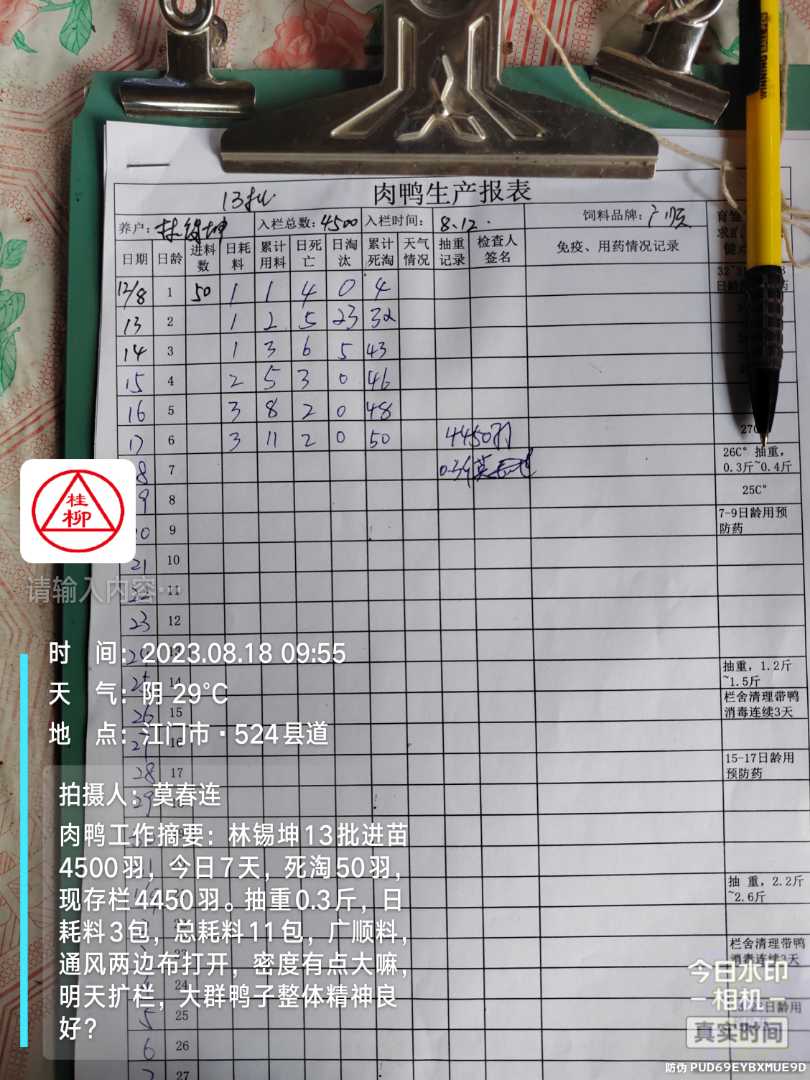 13批
肉鸭生产报表
养户: 林锡坤 入栏总数: 4500 入栏时间: 8.12. 饲料品牌: 广顺
日期 日龄 进料数 日耗料 累计用料 日死亡 日淘汰 累计死淘 天气情况 抽重记录 检查人签名 免疫、用药情况记录
12/8 1 50 1 1 4 0 4
13 2 1 2 5 23 32
14 3 1 3 6 5 43
15 4 2 5 3 0 46
16 5 3 8 2 0 48
17 6 3 11 2 0 50 4450羽
8 7 0.3斤 莫春连 26C° 抽重,
0.3斤~0.4斤
9 8 25C°
0 9 7-9日龄用预
防药
21 10
11
23 12
14 抽重, 1.2斤
~1.5斤
26 15 栏舍清理带鸭
消毒连续3天
16
28 17 15-17日龄用
预防药
29
抽 重, 2.2斤
~2.6斤
栏舍清理带鸭
消毒连续3天
24
5 25
6 26
7 27
桂柳
请输入内容…
时 间: 2023.08.18 09:55
天 气: 阴 29℃
地 点: 江门市·524县道
拍摄人: 莫春连
肉鸭工作摘要: 林锡坤13批进苗
4500羽, 今日7天, 死淘50羽,
现存栏4450羽。抽重0.3斤, 日
耗料3包, 总耗料11包, 广顺料,
通风两边布打开, 密度有点大嘛,
明天扩栏, 大群鸭子整体精神良
好?
今日水印
相机
真实时间
防伪 PUD69EYBXMUE9D